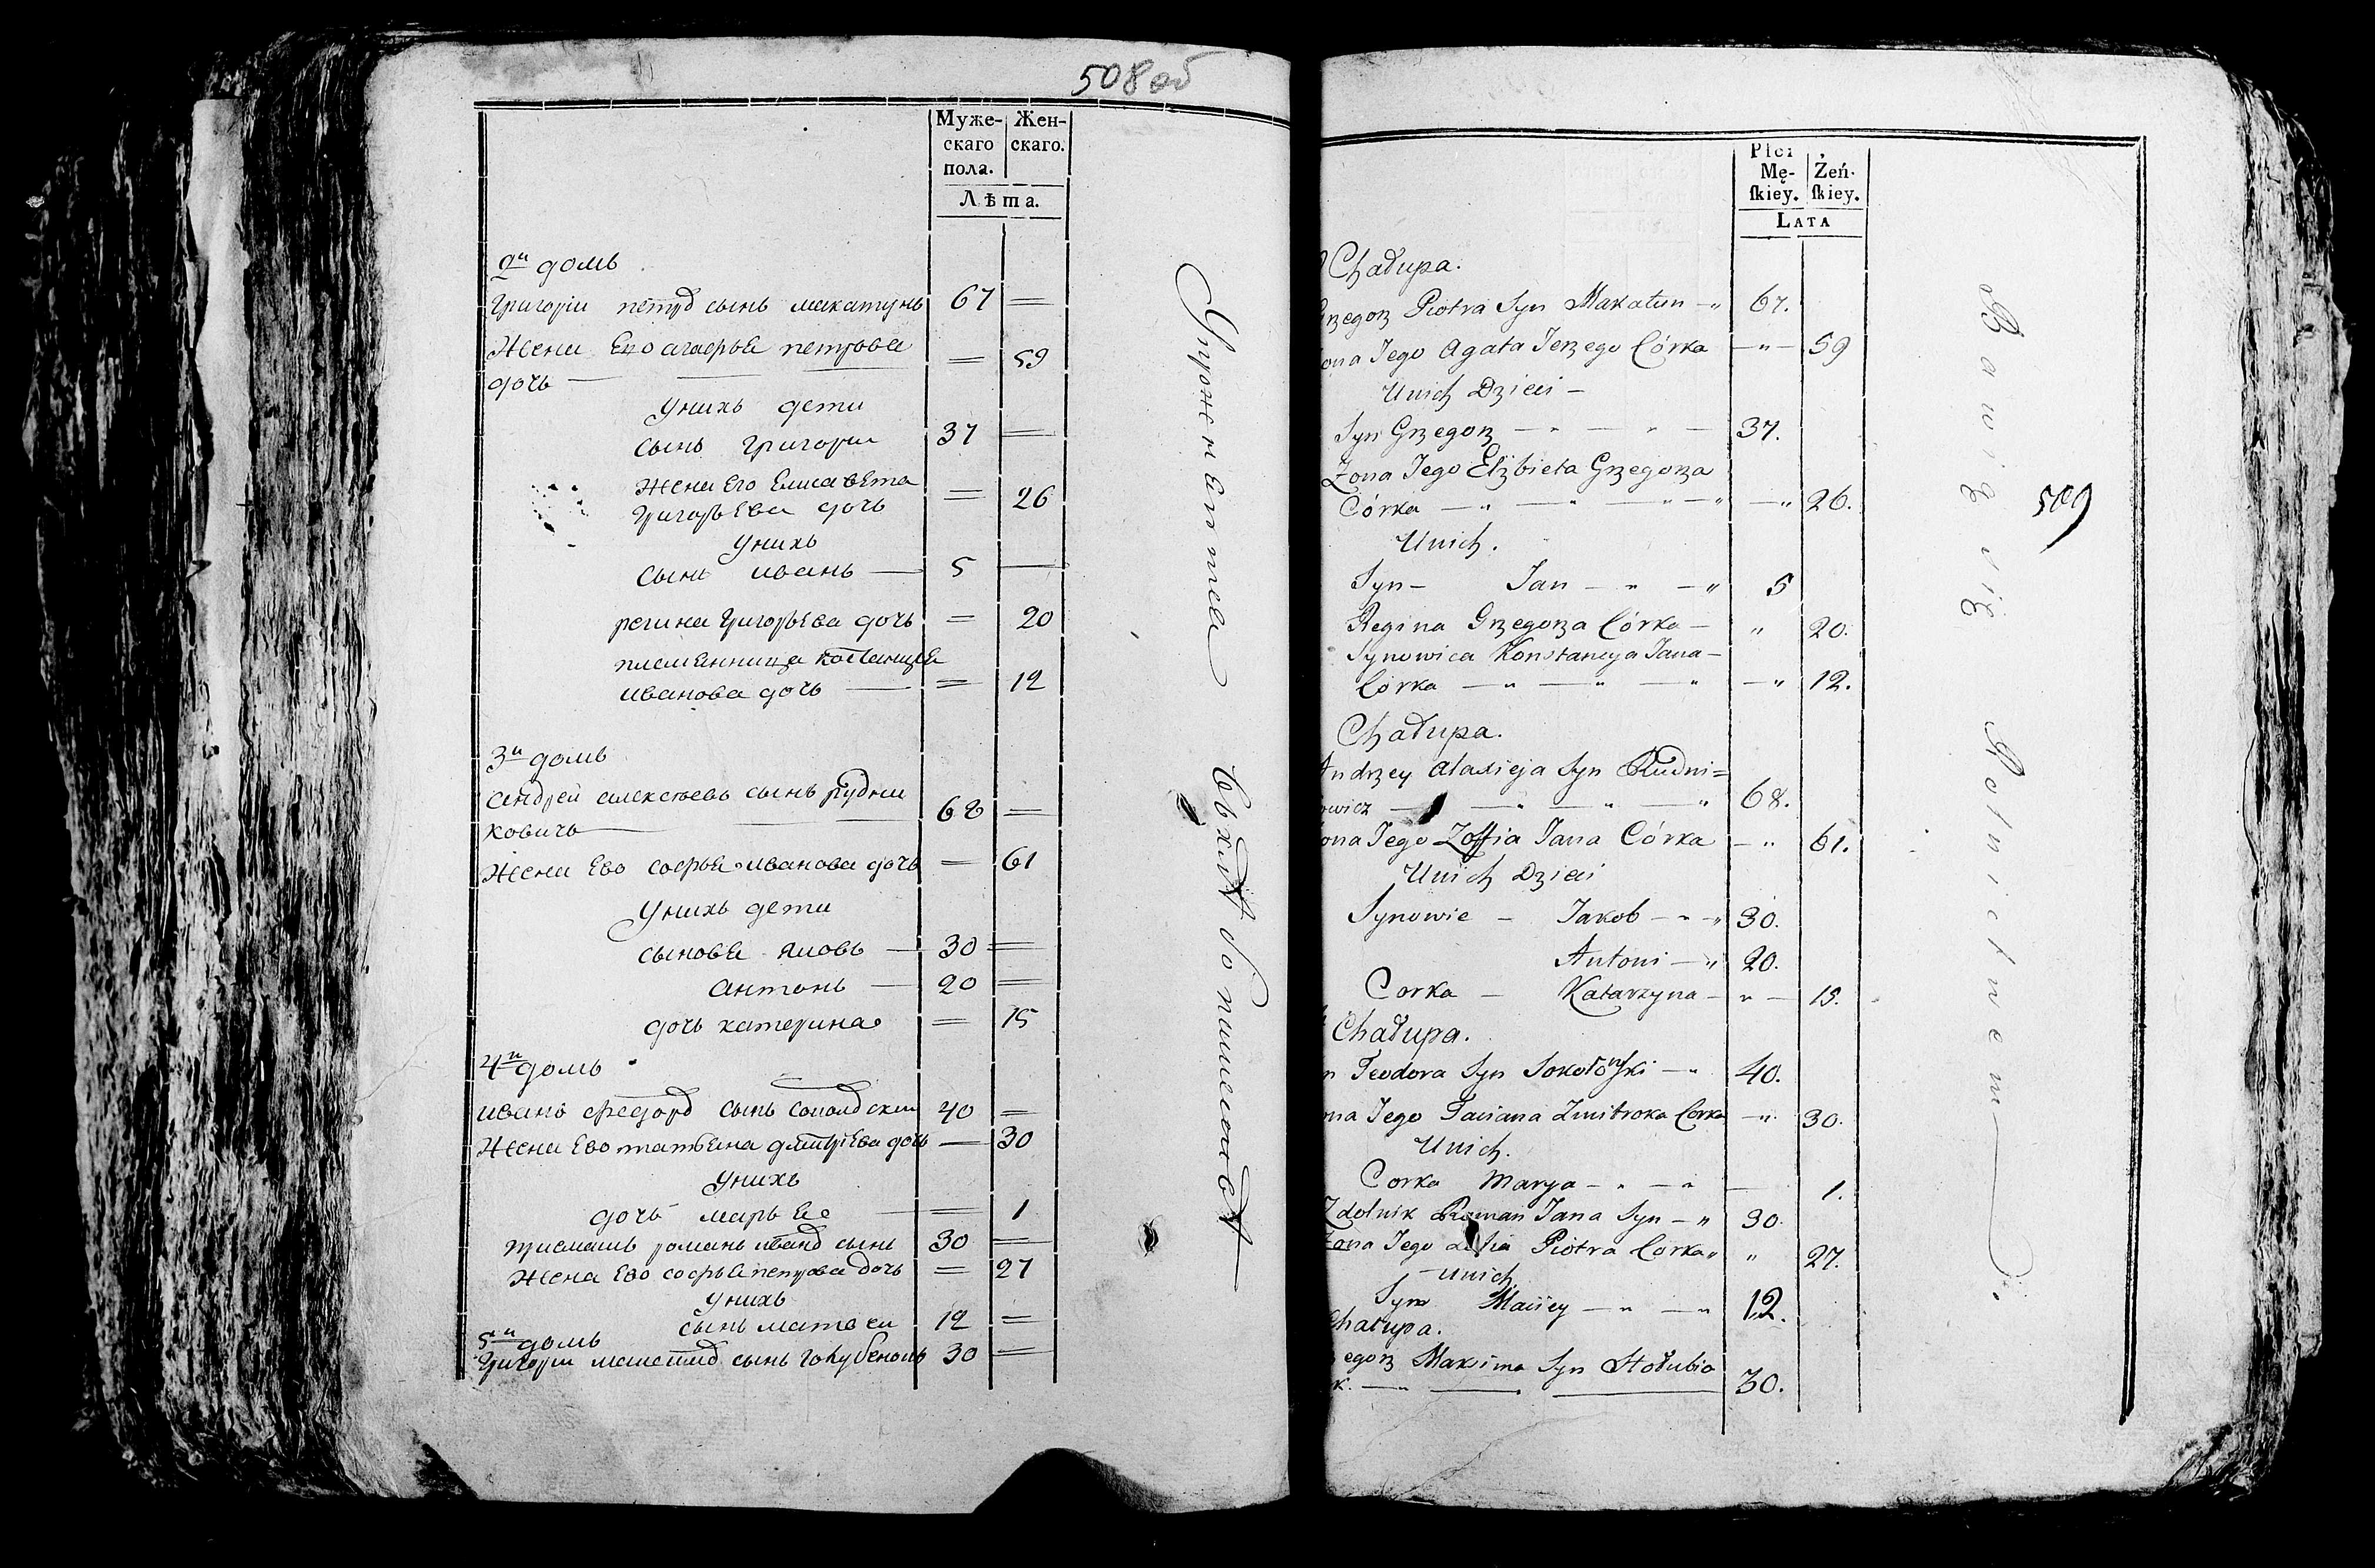 508 об
Муже-
скаго
пола.
Жен-
скаго.
Лѣта.
2й домъ
Григорiи петров сынъ макатунъ 67 =
Жена Его агафья петрова
дочь — = 59
Унихъ дети
сынъ Григории 37 =
Жена Его Елисавета
Григорьева дочь = 26
Унихъ
сынъ иванъ — 5 —
регина Григорьева дочь = 20
племянница констанция
иванова дочь — = 12
3й домъ
Андрей алексеевъ сынъ рудни
ковичь — 68 =
Жена Ево софья иванова дочь — 61
Унихъ дети
сыновья яковъ — 30 =
антонъ — 20 =
дочь катерина = 15
4й домъ
иванъ федоров сынъ соколовский 40 =
Жена Ево татьяна дмитриева дочь — 30
Унихъ
дочь марья = 1
приемашъ романъ иванов сынъ 30 =
Жена Ево софья петрова дочь = 27
Унихъ
сынъ матвеи 12 =
5й домъ
Григории сынъ 30 =
Упражняитца
въ хлебопашестве
Płci
Mę-
skiey.
Żeń-
skiey.
LATA
Chałupa.
rzegorz Piotra Syn Makatun — 67.
ona Jego Agata Jerzego Córka — " — 59
Unich Dzieci —
Syn Grzegorz — " — " — 37.
Żona Jego Elżbieta Grzegorza
Córka — " — " — " — " 26.
Unich.
Syn — Jan — " — " 5
Regina Grzegorza Córka — " 20.
Synowica Konstancya Jana —
Córka — " — " — " — " 12.
Chałupa.
Andrzey Alaxieja Syn Rudni=
owicz — " — " — " 68.
ona Jego Zoffia Jana Córka — " 61.
Unich Dzieci
Synowie — Jakob — " — " 30.
Antoni — " 20.
Corka — Katarzyna — " — 15.
Chałupa.
n Teodora Syn Sokołowski — " 40.
na Jego Taciana Zmitroka Corka — " 30.
Unich.
Corka Marya — " — " — 1.
Zdolnik Roman Jana Syn — " 30.
Żona Jego Zofia Piotra Corka " " 27.
Unich
Syn Maciey — " — " 12.
Chałupa.
egorz Maxima Syn Hołubio
k. — " — 30.
Bawią się
Rolnictwem
509